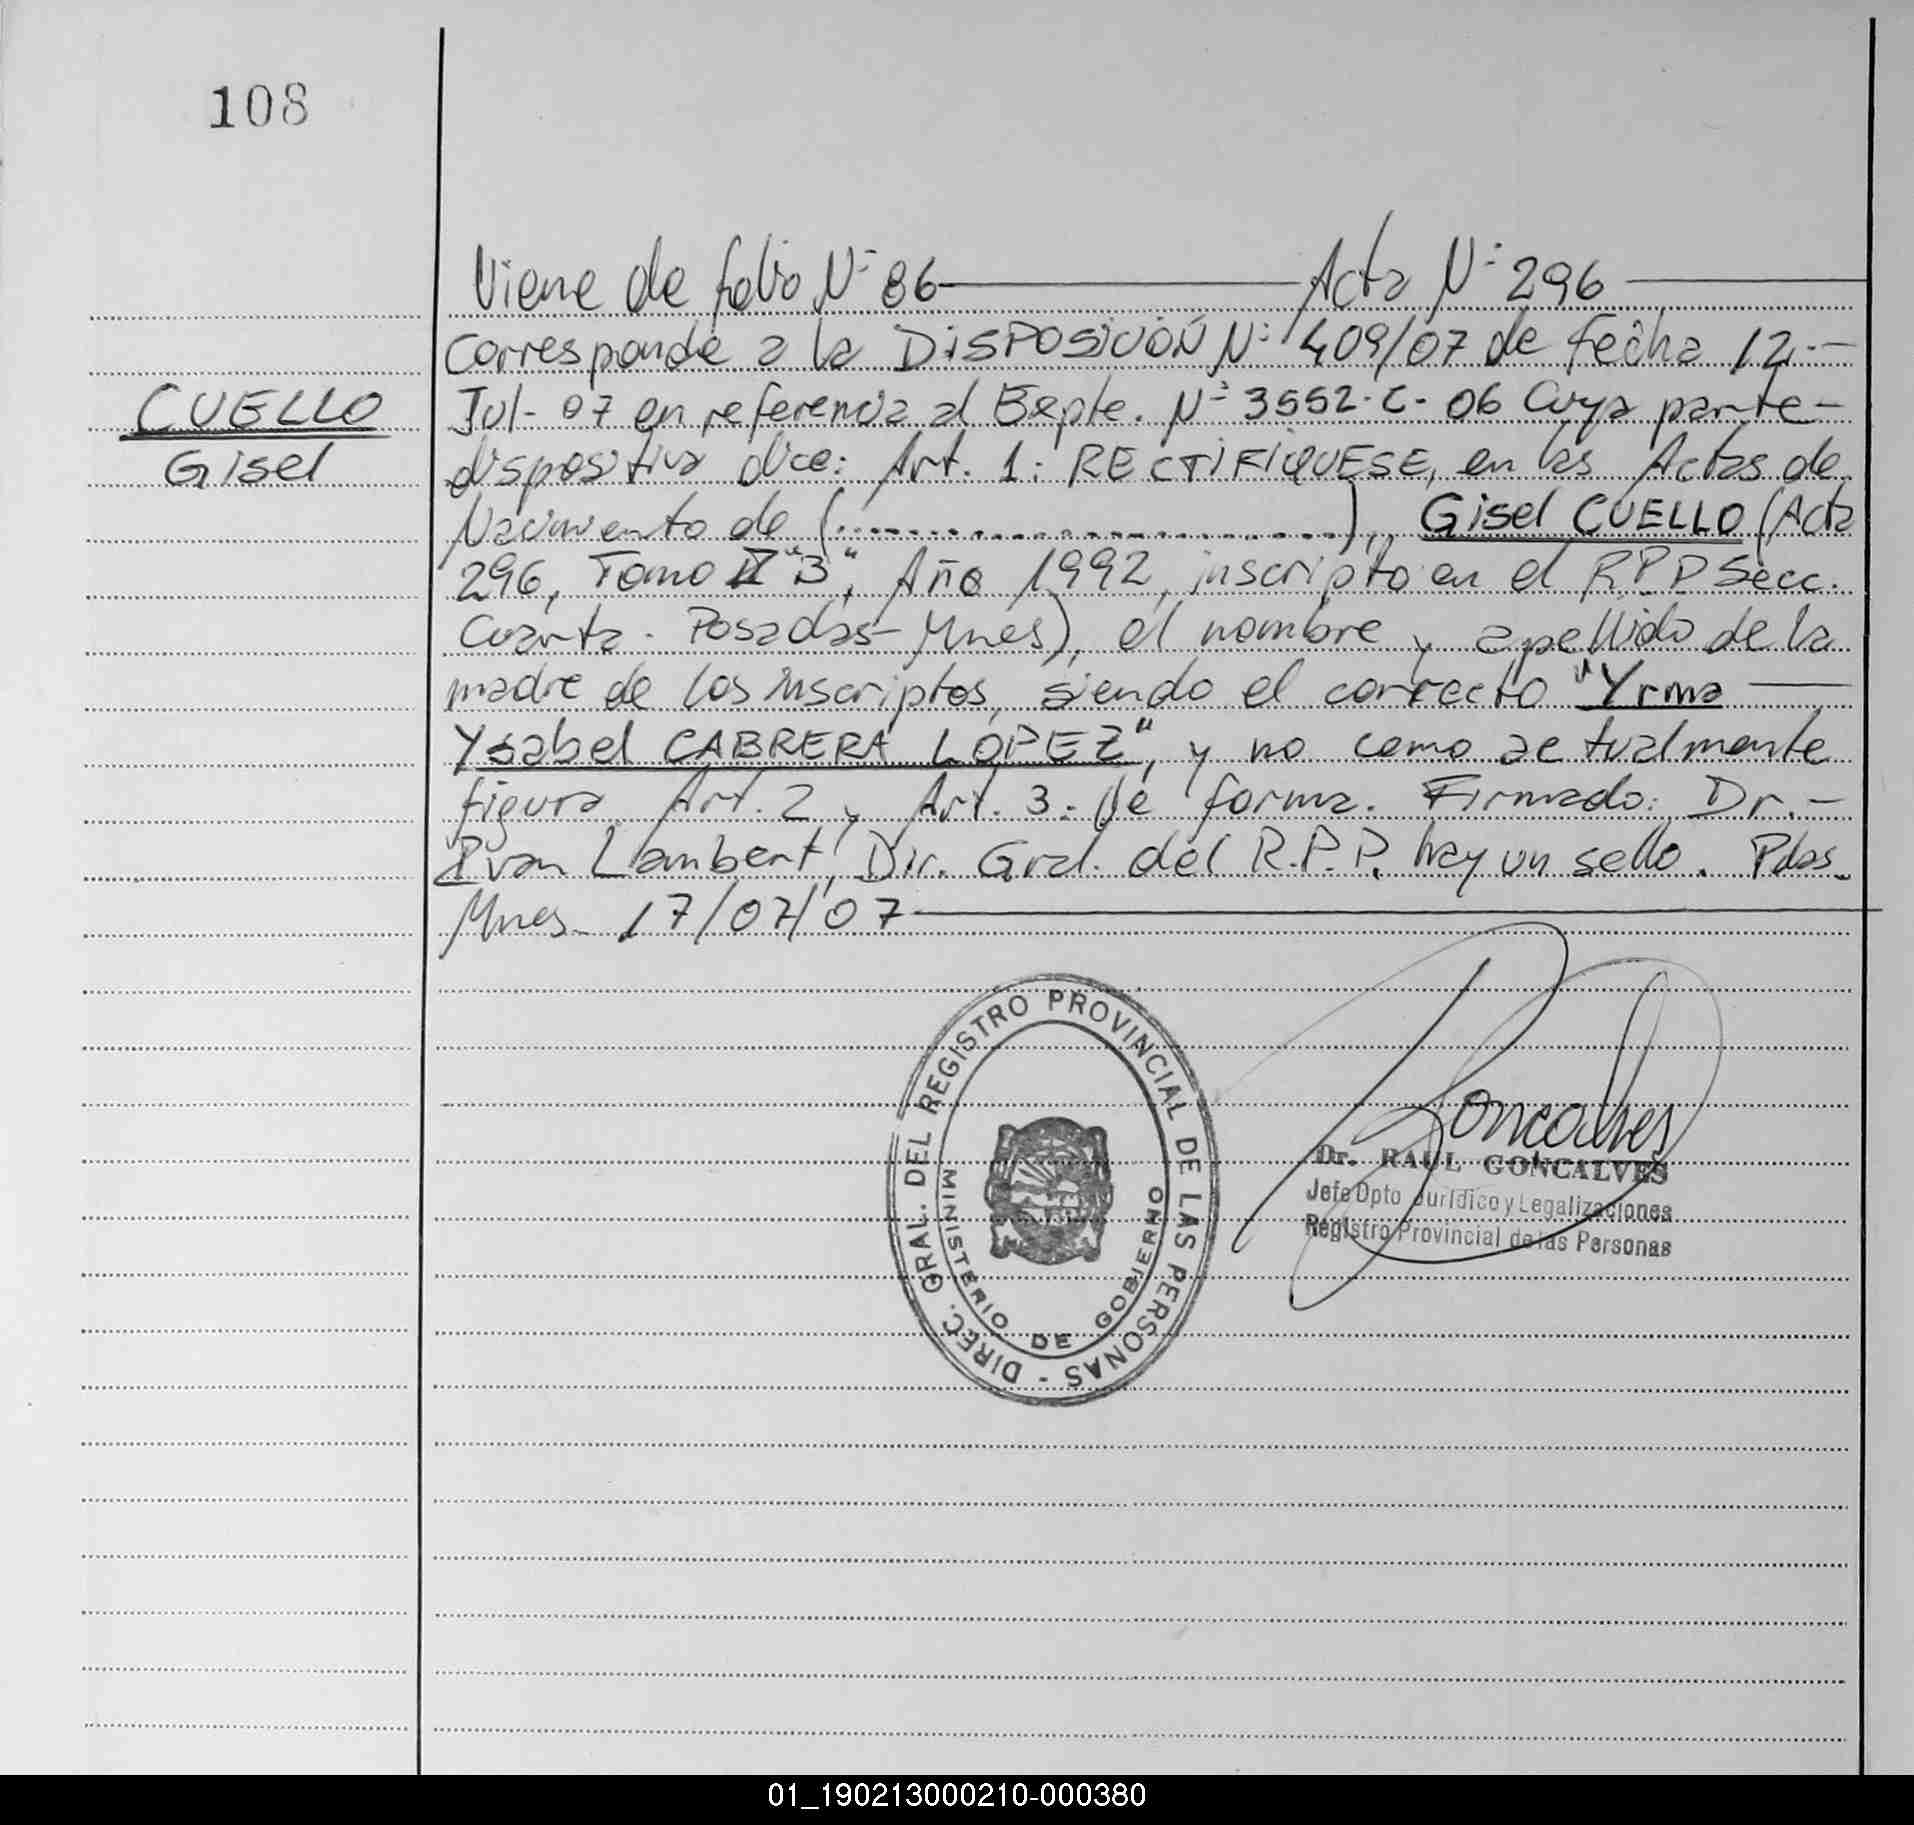 108
Viene de folio N° 86 — Acta N° 296 —
Corresponde a la DISPOSICIÓN N° 409/07 de fecha 12.-
CUELLO
Gisel
Jul-07 en referencia al Expte. N° 3552-C-06 Cuya parte-
dispositiva dice: Art. 1: RECTIFIQUESE, en las Actas de
Nacimiento de (..........................), Gisel CUELLO (Acta
296, Tomo II "B", Año 1992, inscripto en el R.P.P Secc.
Cuarta. Posadas-Mnes), el nombre y apellido de la
madre de los inscriptos, siendo el correcto "Yrma —
Ysabel CABRERA LOPEZ", y no como actualmente
figura. Art. 2 y Art. 3: de forma. Firmado: Dr.-
Ivan Lambert, Dir. Gral. del R.P.P. hay un sello. Pdas.
Mnes. 17/07/07 —
DIREC. GRAL. DEL REGISTRO PROVINCIAL DE LAS PERSONAS -
MINISTERIO DE GOBIERNO
Goncalves
Dr. RAUL GONCALVES
Jefe Dpto Jurídico y Legalizaciones
Registro Provincial de las Personas
01_190213000210-000380